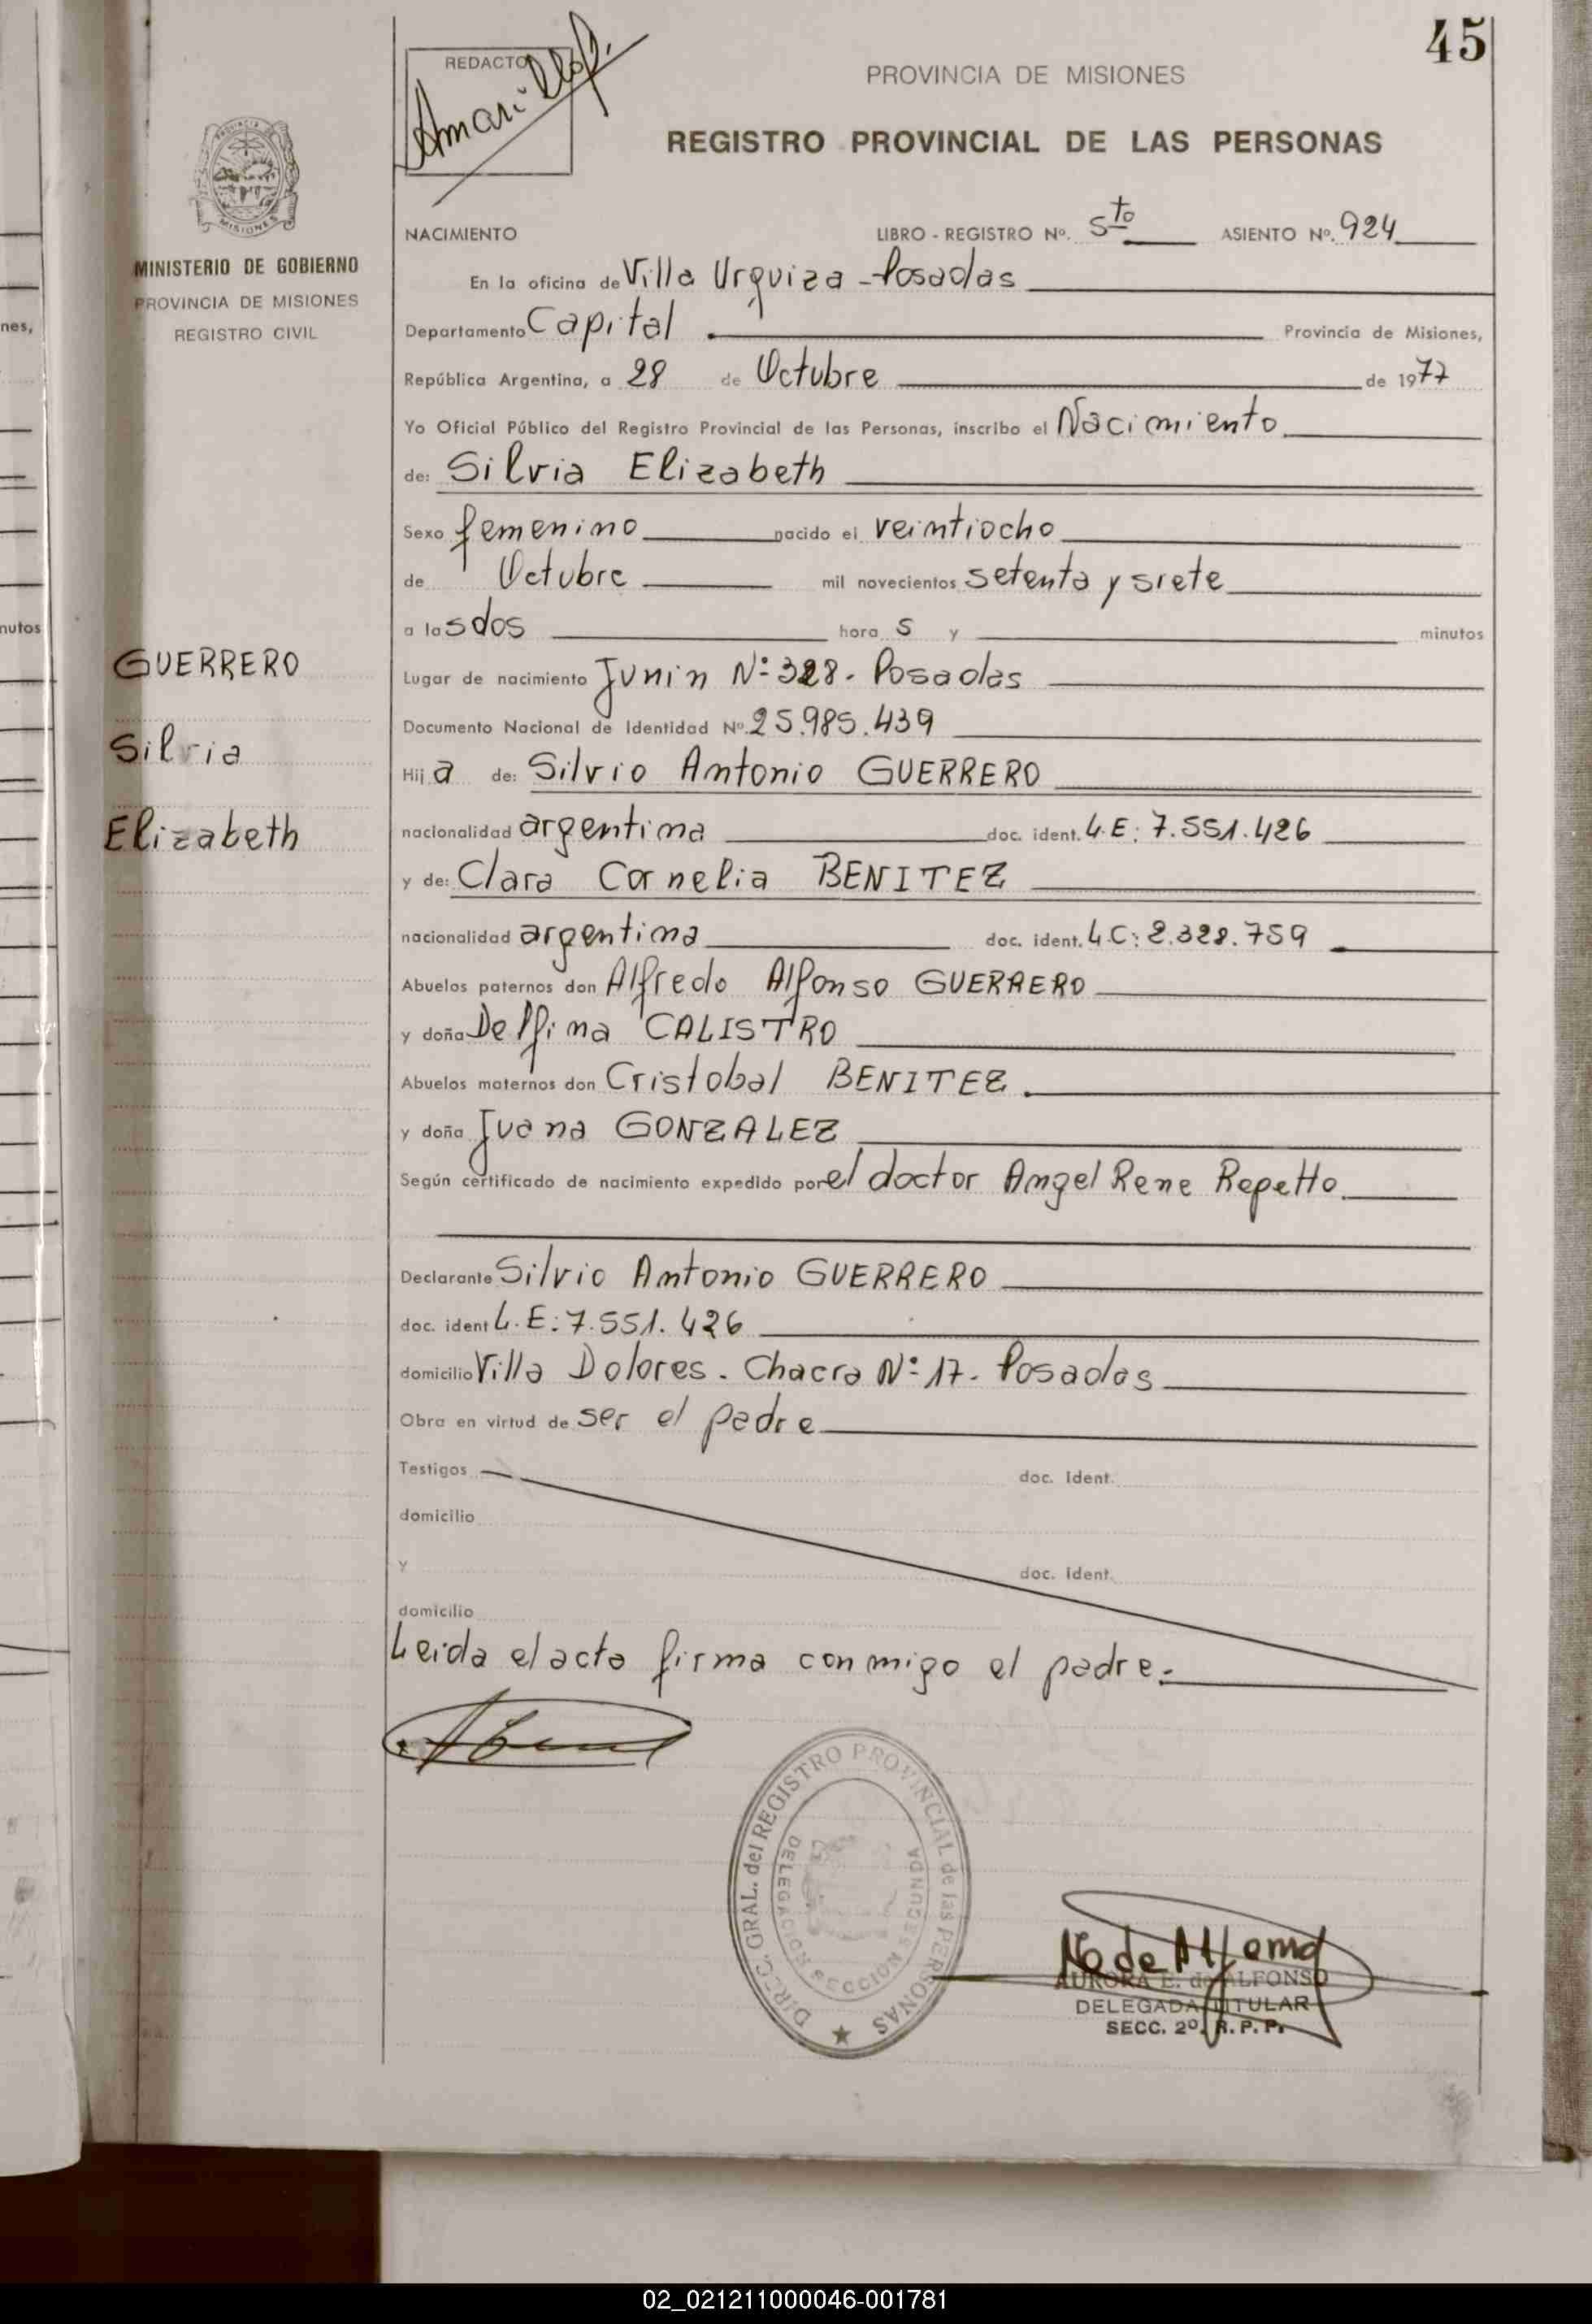 45
REDACTO
Amarilla
PROVINCIA DE MISIONES
REGISTRO PROVINCIAL DE LAS PERSONAS
MISIONES
MINISTERIO DE GOBIERNO
PROVINCIA DE MISIONES
REGISTRO CIVIL
NACIMIENTO LIBRO - REGISTRO Nº. 5to ASIENTO Nº. 924
En la oficina de Villa Urquiza - Posadas
Departamento Capital. Provincia de Misiones,
República Argentina, a 28 de Octubre de 1977
Yo Oficial Público del Registro Provincial de las Personas, inscribo el Nacimiento
de: Silvia Elizabeth
Sexo femenino nacido el veintiocho
de Octubre mil novecientos setenta y siete
a las dos hora s y minutos
GUERRERO
Silvia
Elizabeth
Lugar de nacimiento Junin Nº 328. Posadas
Documento Nacional de Identidad Nº. 25.985.439
Hij a de: Silvio Antonio GUERRERO
nacionalidad argentina doc. ident. L.E: 7.551.426
y de: Clara Cornelia BENITEZ
nacionalidad argentina doc. ident. L.C: 2.328.759
Abuelos paternos don Alfredo Alfonso GUERRERO
y doña Delfina CALISTRO
Abuelos maternos don Cristobal BENITEZ.
y doña Juana GONZALEZ
Según certificado de nacimiento expedido por el doctor Angel Rene Repetto.
Declarante Silvio Antonio GUERRERO
doc. ident L.E: 7.551.426
domicilio Villa Dolores. Chacra Nº 17. Posadas
Obra en virtud de ser el padre
Testigos doc. ident.
domicilio
y doc. ident.
domicilio
Leida el acta firma conmigo el padre.
DIREC. GRAL. del REGISTRO PROVINCIAL de las PERSONAS
DELEGACION SECCION SEGUNDA
AURORA E. de ALFONSO
DELEGADA TITULAR
SECC. 2º. R. P. P.
nes,
nutos
02_021211000046-001781